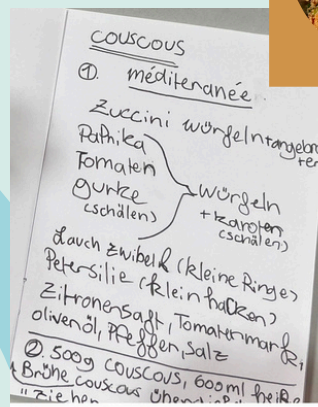 COUSCOUS
①. méditenanée
Zuccini würfeln + angebra
ten
Paprika
Tomaten
Gurke
(schälen)
würfeln
+ Karotten
(schälen)
Lauch zwiebel (kleine Ringe)
Petersilie (klein hacken)
Zitronensaft, Tomatenmark,
olivenöl, Pfeffer, Salz
② 500g COUSCOUS, 600ml heiße
Brühe couscous
ziehen